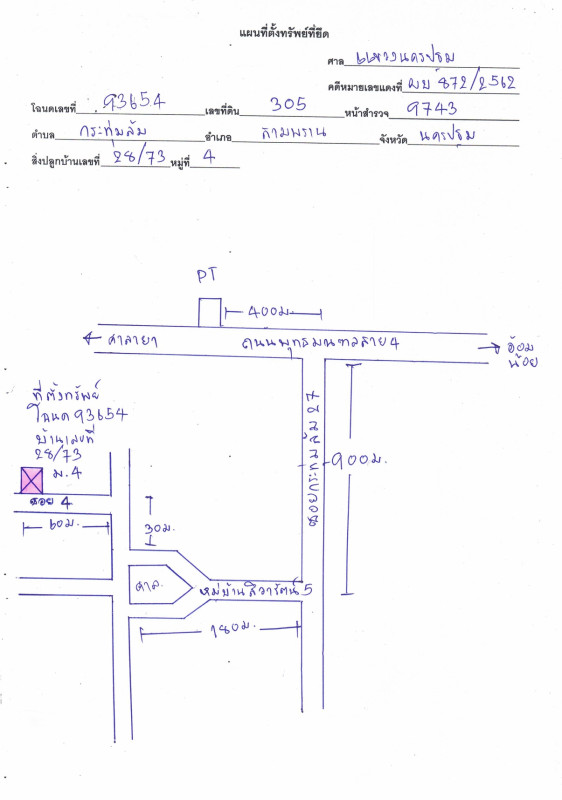 แผนที่ตั้งทรัพย์ที่ยึด
ศาล แขวงนครปฐม
คดีหมายเลขแดงที่ ผบ 872/2562
โฉนดเลขที่ 93654 เลขที่ดิน 305 หน้าสำรวจ 9743
ตำบล กระทุ่มล้ม อำเภอ สามพราน จังหวัด นครปฐม
สิ่งปลูกบ้านเลขที่ 28/73 หมู่ที่ 4
PT
400ม.
ศาลายา
ถนนพุทธมณฑลสาย 4
อ้อม
น้อย
ที่ตั้งทรัพย์
โฉนด 93654
บ้านเลขที่
28/73
ม.4
ซอย 4
60ม.
30ม.
900ม.
ศาล.
หมู่บ้านสิวารัตน์ 5
180ม.